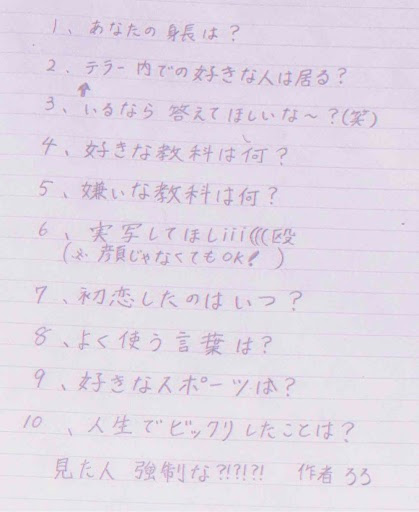 1、あなたの身長は？
2、テラー内での好きな人は居る？
↑
3、いるなら答えてほしいな～？(笑)
4、好きな教科は何？
5、嫌いな教科は何？
6、実写してほしiii(((殴
(※顔じゃなくてもOK!)
7、初恋したのはいつ？
8、よく使う言葉は？
9、好きなスポーツは？
10、人生でビックリしたことは？
見た人 強制な?!?!?! 作者 るる